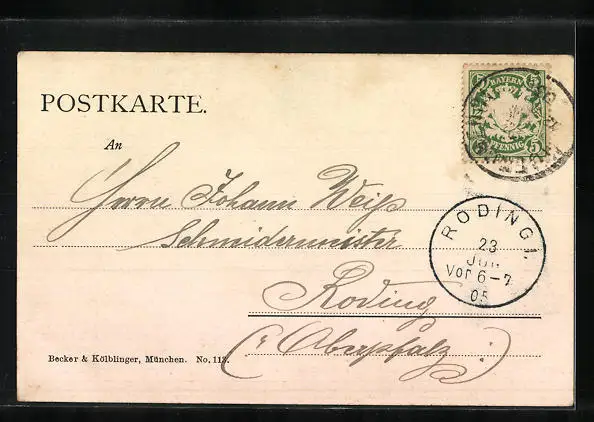 POSTKARTE.
An
BAYERN
5 5
PFENNIG
Herrn Johann Weiß
Schneidermeister
Roding
(: Oberpfalz :)
RODING I.
23
JUN
Vor 6-7
05
Becker & Kölblinger, München. No. 113.